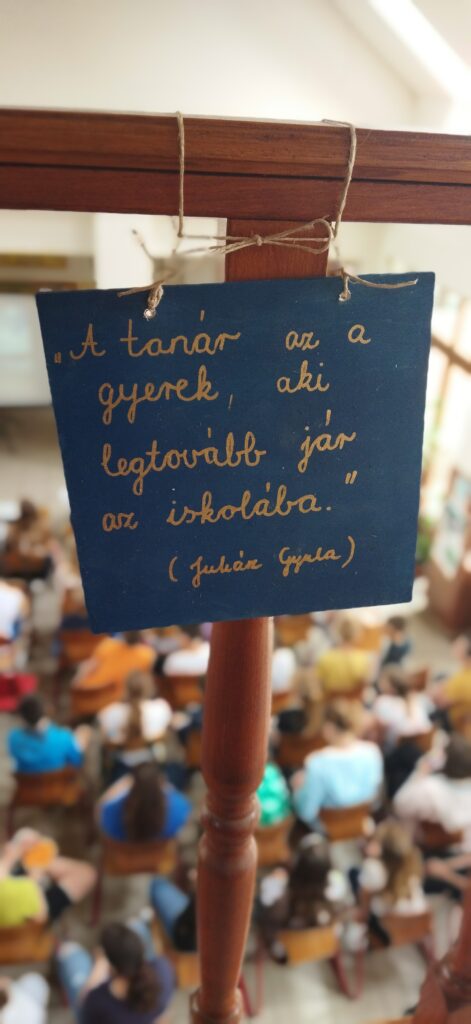 „A tanár az a
gyerek, aki
legtovább jár
az iskolába."
(Juhász Gyula)